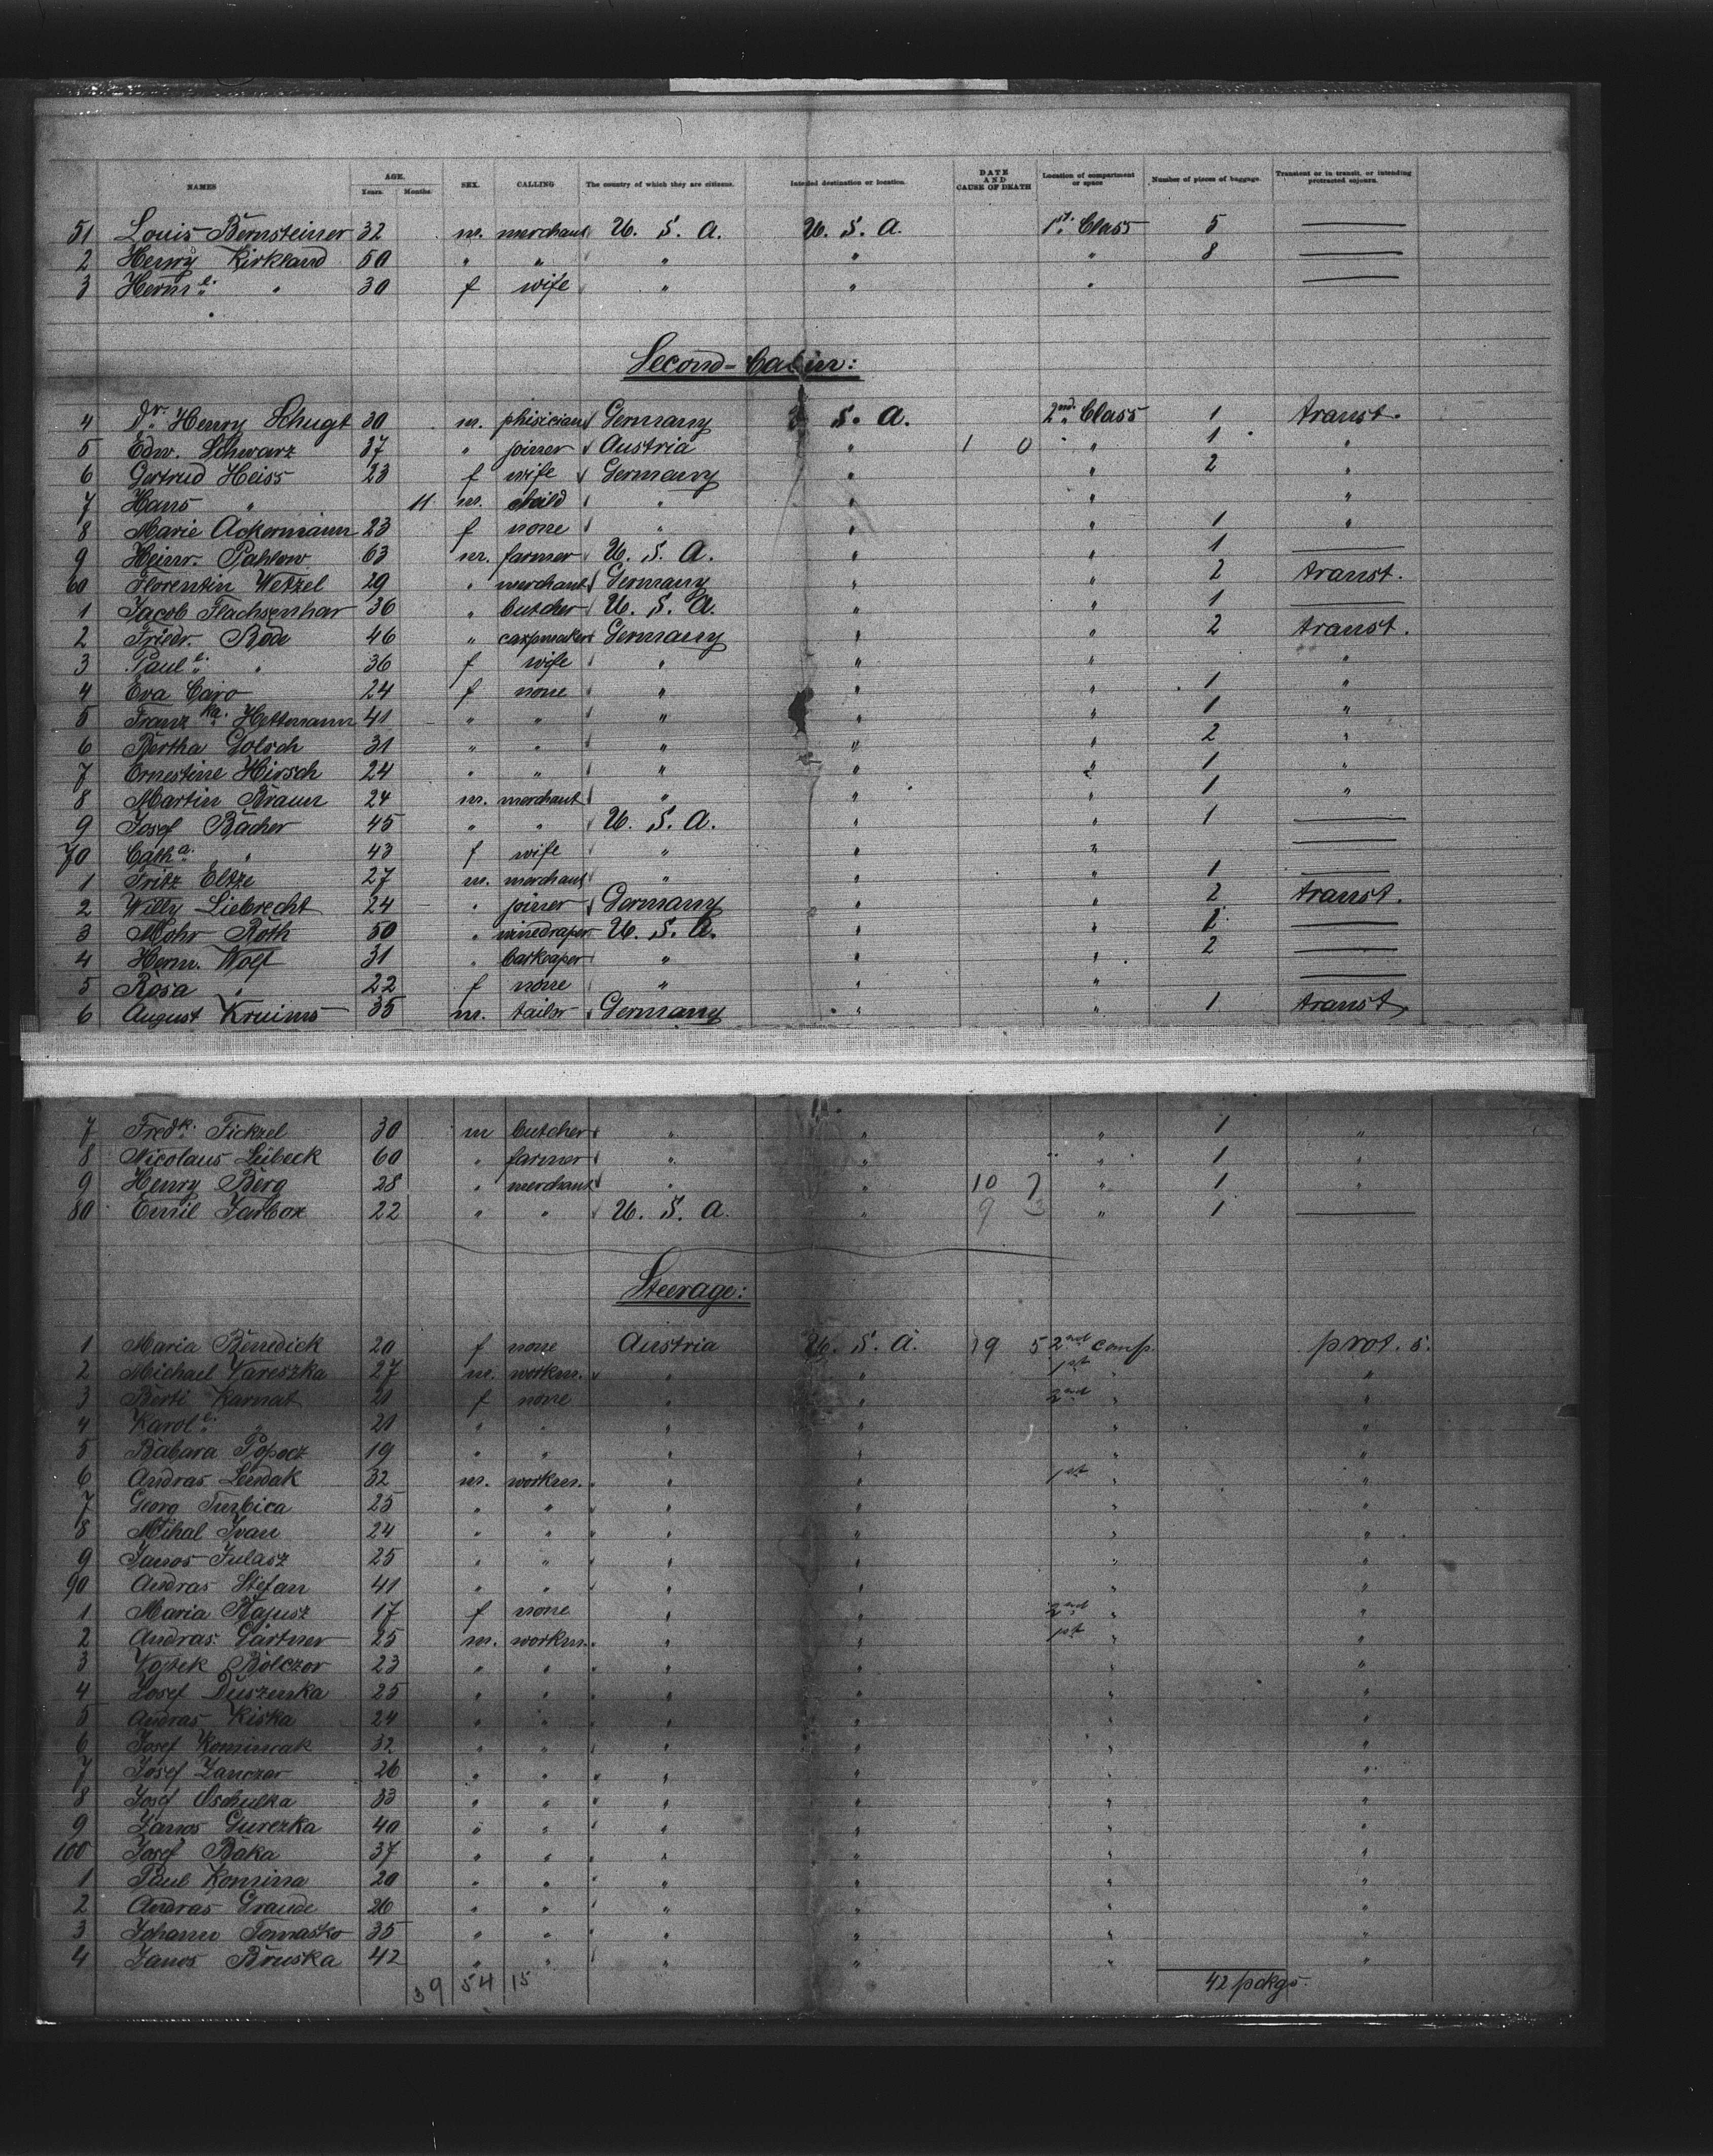 NAMES AGE. Years. Months. SEX. CALLING The country of which they are citizens. Intended destination or location. DATE AND CAUSE OF DEATH Location of compartment or space Number of pieces of baggage. Transient or in transit, or intending protracted sojourn.
51 Louis Bernsteiner 32 m. merchant U. S. A. U. S. A. 1st Class 5 —
2 Henry Kirkland 50 " " " " " 8 —
3 Herme. " 30 f wife " " " —
Second-Cabin:
4 Dr. Henry Schugt 30 m. phisician Germany S. A. 2nd Class 1 transt.
5 Edw. Schwarz 37 " joiner Austria " 1 0 " 1 "
6 Gertrud Heiss 23 f wife Germany " " 2 "
7 Hans " 11 m. child " " " "
8 Marie Ackermann 23 f none " " " 1 "
9 Heinr. Pahlow 63 m. farmer U. S. A. " " 1 —
60 Florentin Wetzel 29 " merchant Germany " " 2 transt.
1 Jacob Flachsenhar 36 " butcher U. S. A. " " 1 —
2 Friedr. Bode 46 " capmaker Germany " " 2 transt.
3 Paule. " 36 f wife " " " "
4 Eva Caro 24 f none " " " 1 "
5 Franzka. Hettmann 41 " " " " " 1 "
6 Bertha Golsch 31 " " " " " 2 "
7 Ernestine Hirsch 24 " " " " " 1 "
8 Martin Braun 24 m. merchant " " " 1 "
9 Josef Bacher 45 " " U. S. A. " " 1 —
70 Catha. " 43 f wife " " " —
1 Fritz Eltze 27 m. merchant " " " 1 —
2 Willy Liebrecht 24 " joiner Germany " " 2 transt.
3 Mohr Roth 50 " winedraper U. S. A. " " 2 —
4 Herm. Wolf 31 " barkeaper " " " 2 —
5 Rosa " 22 f none " " " —
6 August Kruims 35 m. tailor Germany " " 1 transt.
7 Fredk. Fickzel 30 m butcher " " " 1 "
8 Nicolaus Leibeck 60 " farmer " " " 1 "
9 Henry Berg 28 " merchant " " 10 7 " 1 "
80 Emil Jarbox 22 " " U. S. A. " 9 3 " 1 —
Steerage:
1 Maria Benedick 20 f none Austria U. S. A. 19 5 2nd comp. prot. s.
2 Michael Vareszka 27 m. workm. " " 1st " "
3 Berti Karnat 21 f none " " 2nd " "
4 Karole. " 21 " " " " " "
5 Babara Popocz 19 " " " " " "
6 Andras Lendak 32 m. workm. " " 1st " "
7 Georg Turbica 25 " " " " " "
8 Mihal Ivan 24 " " " " " "
9 Janos Julasz 25 " " " " " "
90 Andras Stefan 41 " " " " " "
1 Maria Rajusz 17 f none " " 2nd " "
2 Andras Gartner 25 m. workm. " " 1st " "
3 Vojtek Bolczor 23 " " " " " "
4 Josef Duszenka 25 " " " " " "
5 Andras Kiska 24 " " " " " "
6 Josef Komincak 32 " " " " " "
7 Josef Zanczar 26 " " " " " "
8 Josef Oschulka 33 " " " " " "
9 Janos Gurezka 40 " " " " " "
100 Josef Baka 37 " " " " " "
1 Paul Komina 20 " " " " " "
2 Andras Graude 26 " " " " " "
3 Johann Tomasko 35 " " " " " "
4 Janos Bruska 42 " " " " " "
39 54 15 42 pckgs.